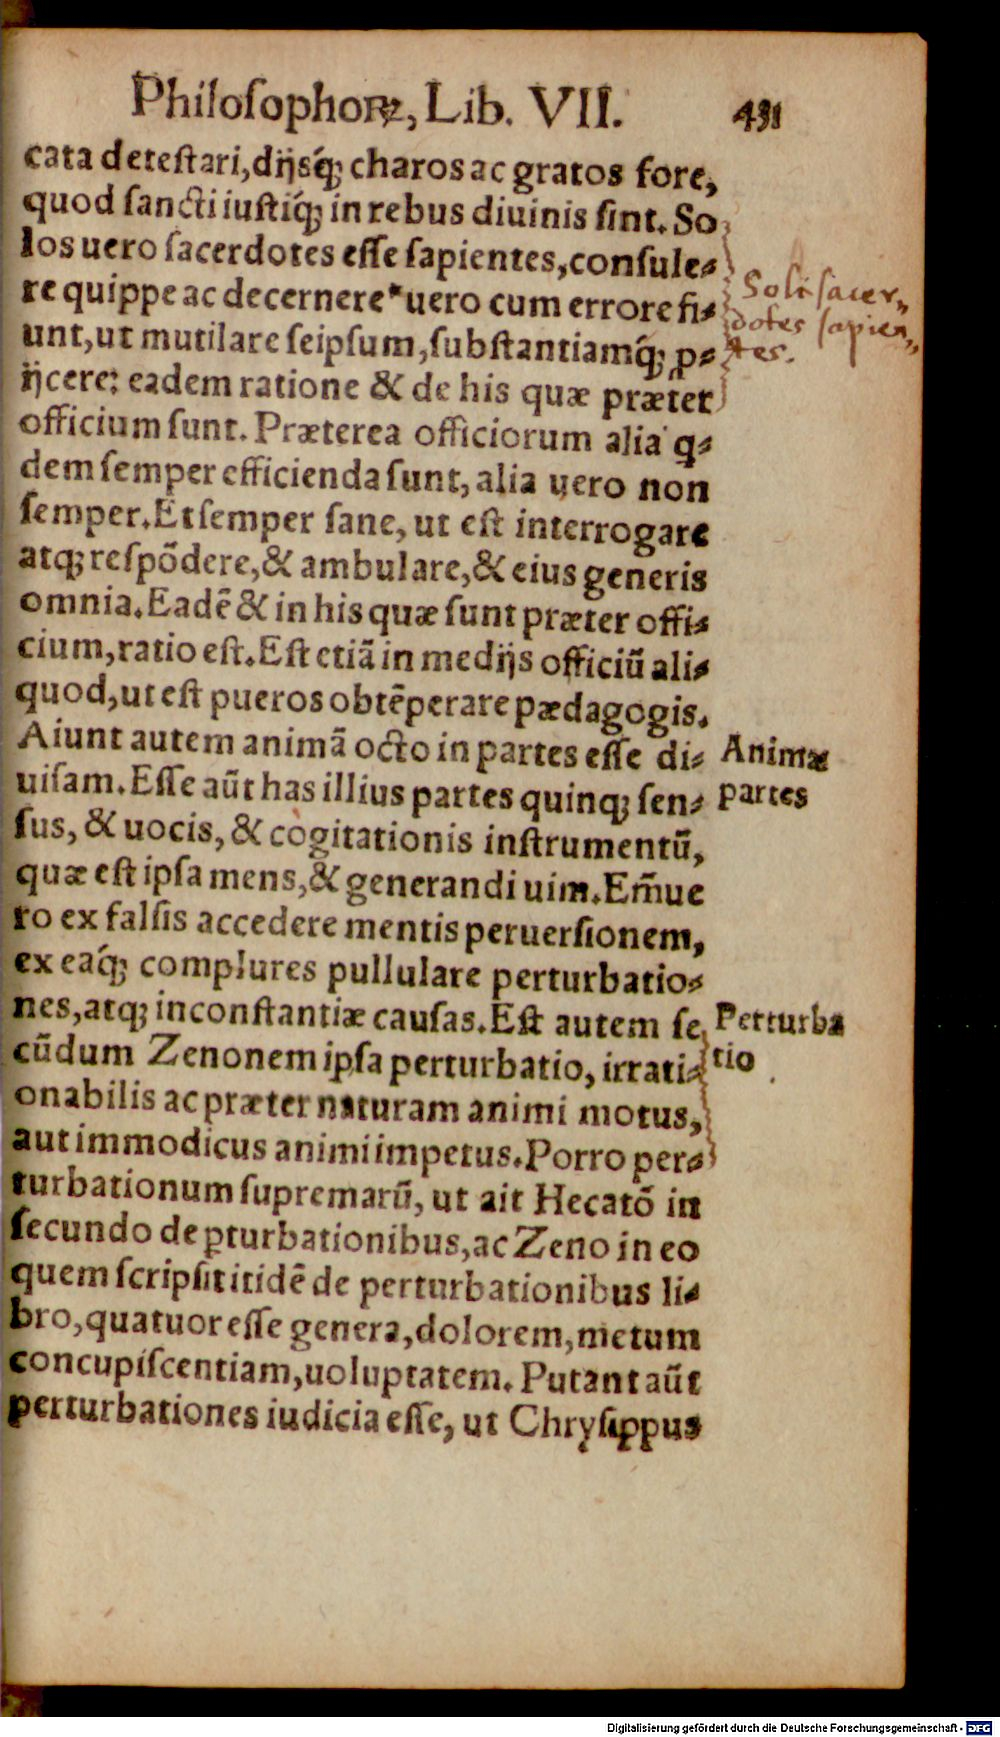 Philosophoꝝ, Lib. VII. 431
cata detestari, dijsq́; charos ac gratos fore,
quod sancti iustiq́; in rebus diuinis sint. So
los uero sacerdotes esse sapientes, consule-
re quippe ac decernere* uero cum errore fi-
unt, ut mutilare seipsum, substantiamq́; ꝓ-
ijcere: eadem ratione & de his quæ præter
officium sunt. Præterea officiorum alia q-
dem semper efficienda sunt, alia uero non
semper. Et semper sane, ut est interrogare
atq; respõdere, & ambulare, & eius generis
omnia. Eadẽ & in his quæ sunt præter offi-
cium, ratio est. Est etiã in medijs officiũ ali-
quod, ut est pueros obtẽperare pædagogis.
Aiunt autem animã octo in partes esse di-
uisam. Esse aũt has illius partes quinq; sen-
sus, & uocis, & cogitationis instrumentũ,
quæ est ipsa mens, & generandi uim. Em̃ue
ro ex falsis accedere mentis peruersionem,
ex eaq́; complures pullulare perturbatio-
nes, atq; inconstantiæ causas. Est autem se
cũdum Zenonem ipsa perturbatio, irrati-
onabilis ac præter naturam animi motus,
aut immodicus animi impetus. Porro per-
turbationum supremarũ, ut ait Hecatõ in
secundo de ꝑturbationibus, ac Zeno in eo
quem scripsit itidẽ de perturbationibus li-
bro, quatuor esse genera, dolorem, metum
concupiscentiam, uoluptatem. Putant aũt
perturbationes iudicia esse, ut Chrysippus
Soli sacer-
dotes sapien-
tes.
Animæ
partes
Perturba
tio
Digitalisierung gefördert durch die Deutsche Forschungsgemeinschaft - DFG